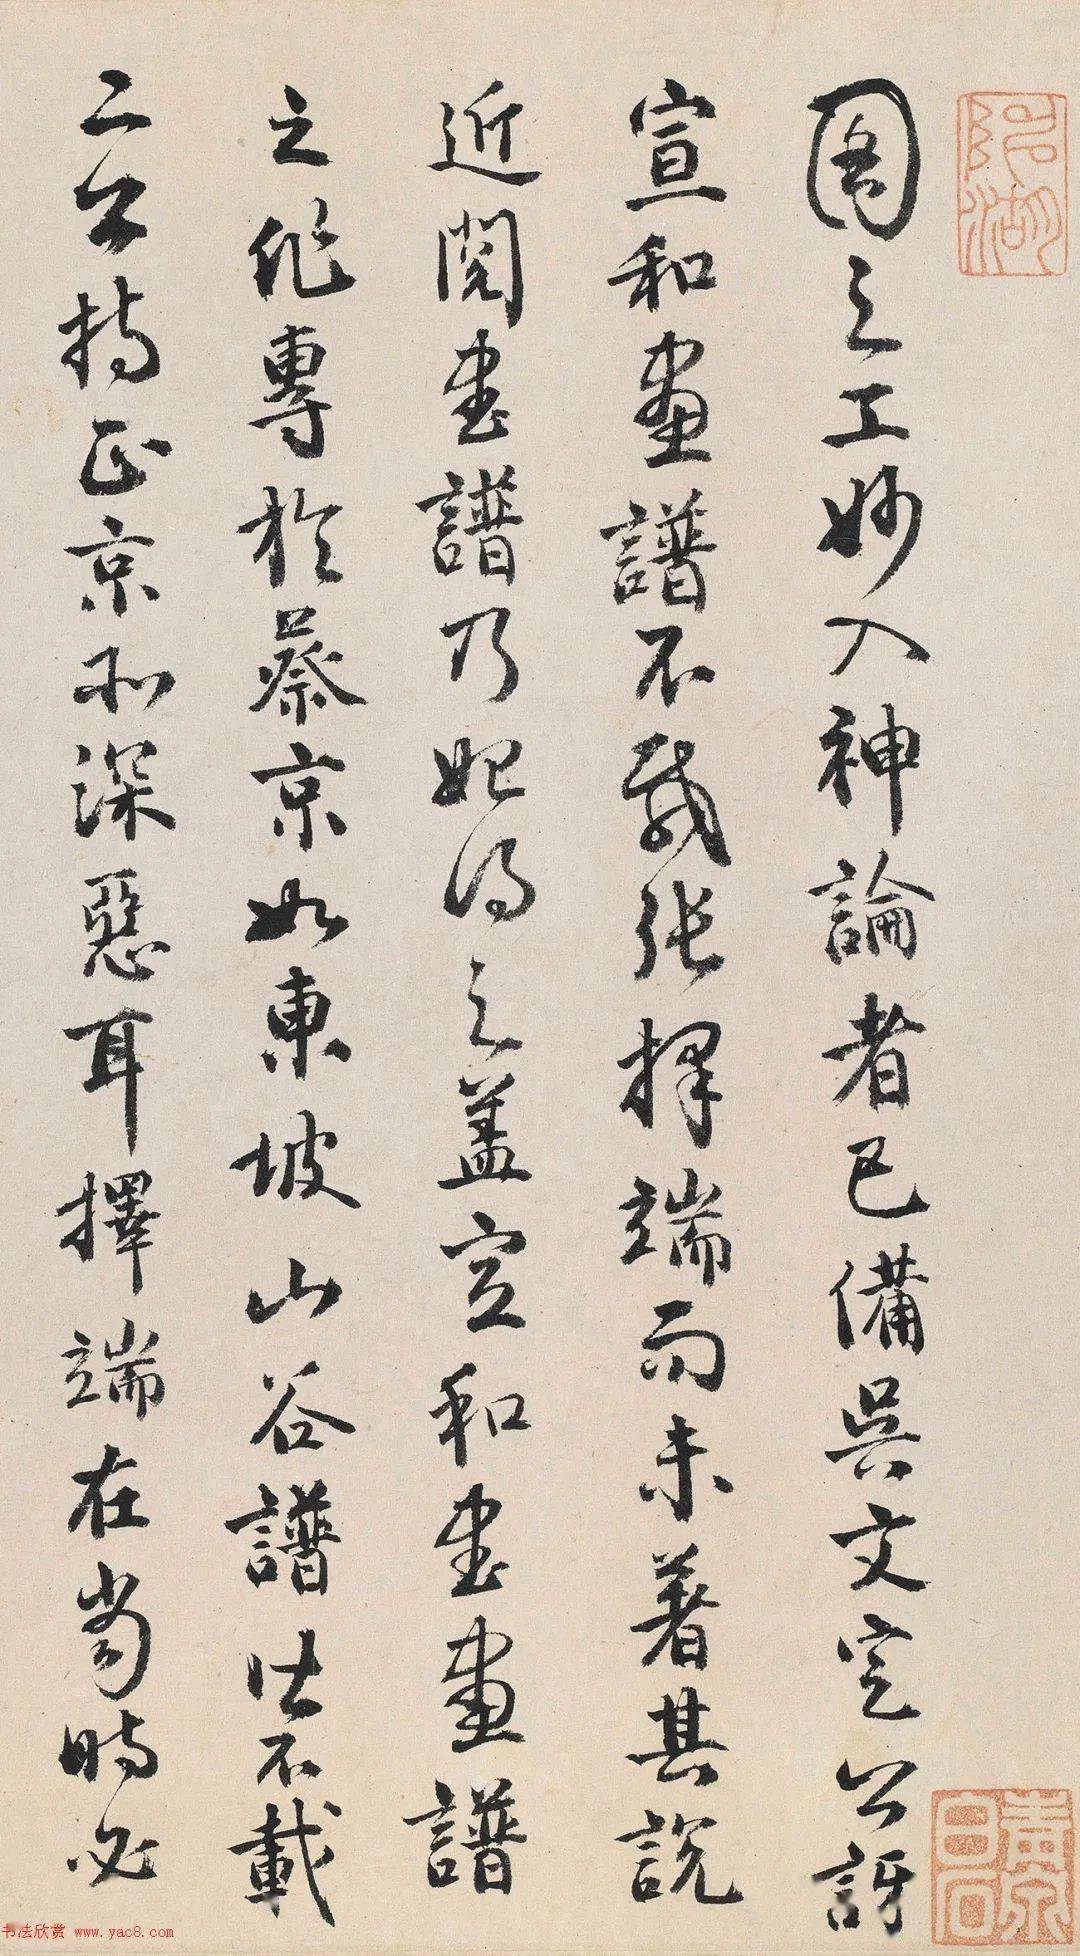 圖之工妙入神論者已備吳文定公訝
宣和畫譜不載張擇端而未著其說
近閱書譜乃始得之蓋宣和書畫譜
之作專於蔡京如東坡山谷譜皆不載
二公持正京所深惡耳擇端在當時必
书法欣赏 www.yac8.com